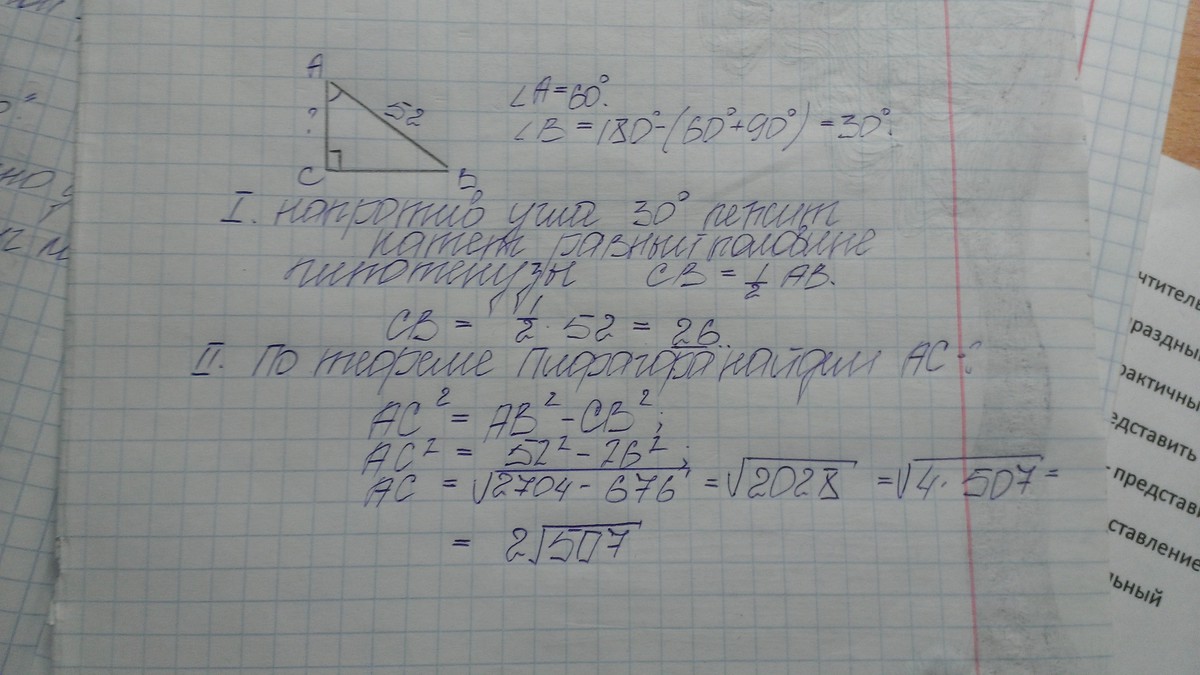 A
52
?
C
B
∠A=60°.
∠B = 180°-(60°+90°) = 30°.
I. напротив угла 30° лежит
катет равный половине
гипотенузы CB = 1/2 AB.
CB = 1/2 · 52 = 26.
II. По теореме Пифагора найдем AC-?
AC² = AB² - CB²;
AC² = 52² - 26²;
AC = √2704 - 676 = √2028 = √4 · 507 =
= 2√507
чтитель
праздный
рактичны
едставить
представи
ставление
льный